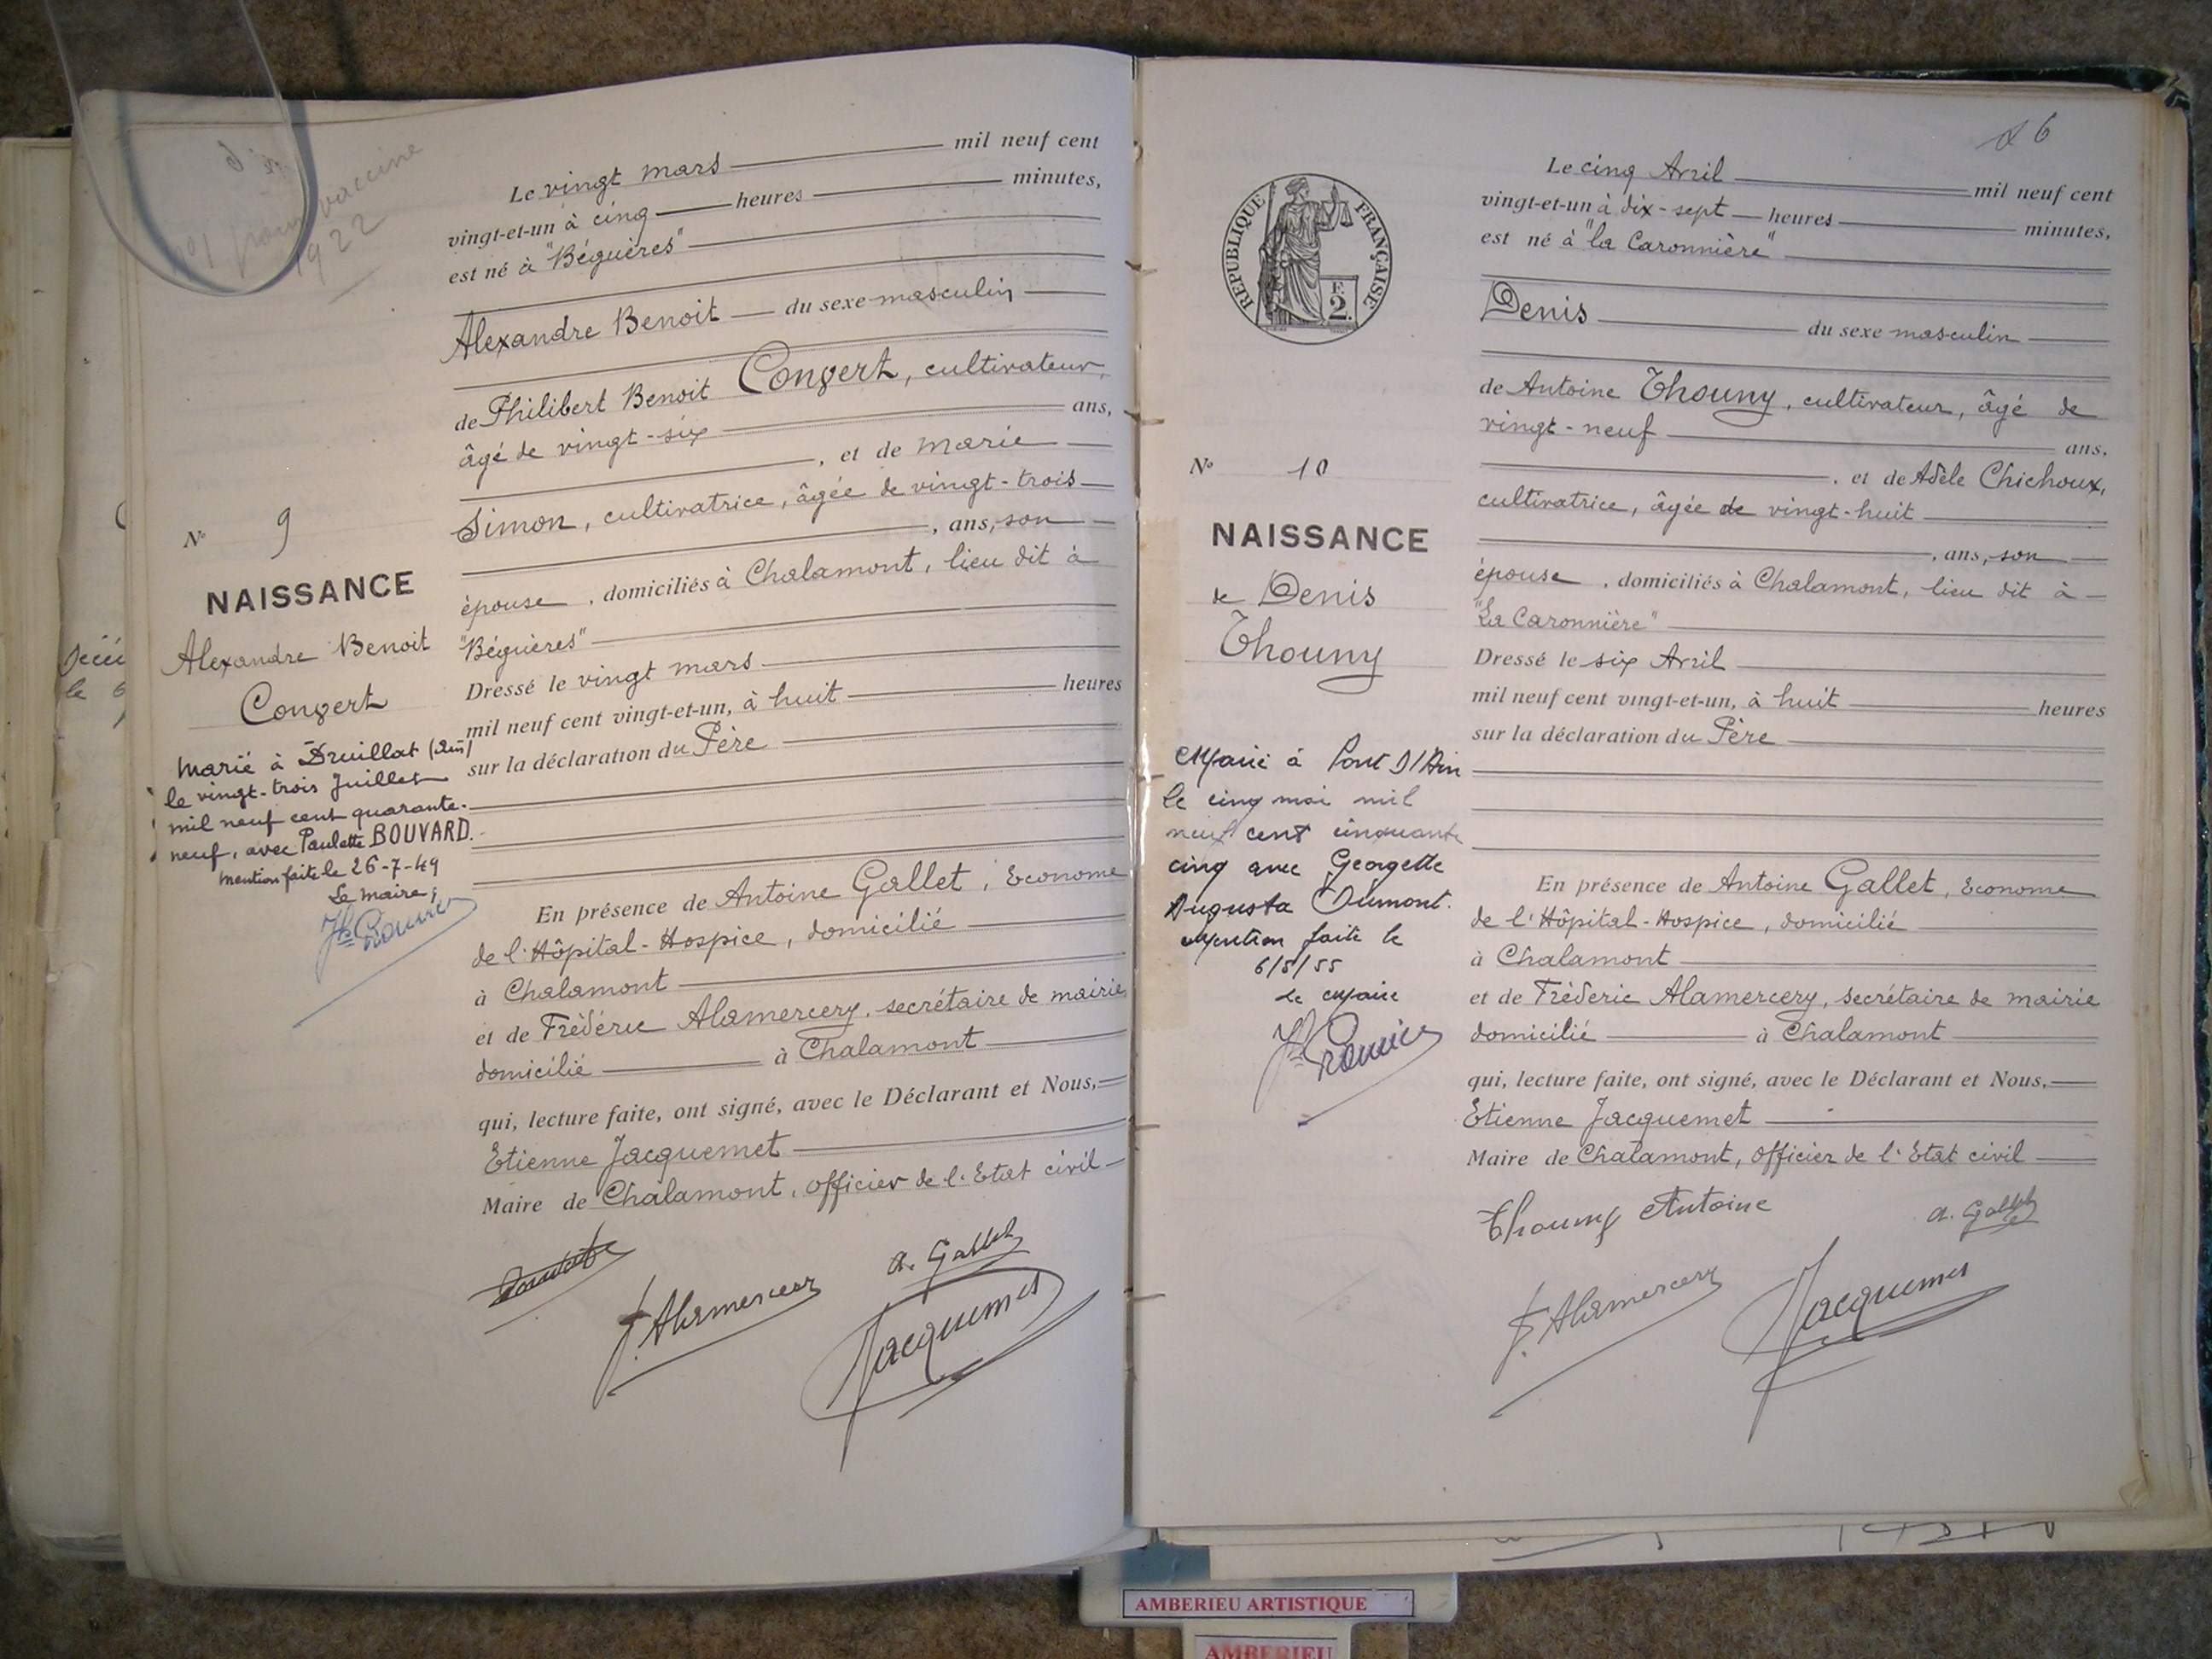 pour vaccine
1922
Le vingt mars mil neuf cent
vingt-et-un à cinq heures minutes,
est né à "Béguères"
Alexandre Benoit du sexe masculin
de Philibert Benoit Convert, cultivateur,
âgé de vingt-six ans,
, et de Marie
Simon, cultivatrice, âgée de vingt-trois
, ans, son
épouse, domiciliés à Chalamont, lieu dit à
"Béguères"
Dressé le vingt mars
mil neuf cent vingt-et-un, à huit heures
sur la déclaration du Père
En présence de Antoine Gallet, Econome
de l'Hôpital-Hospice, domicilié
à Chalamont
et de Frédéric Alamercery, secrétaire de mairie
domicilié à Chalamont
qui, lecture faite, ont signé, avec le Déclarant et Nous,
Etienne Jacquemet
Maire de Chalamont, officier de l'Etat civil
a. Gallet
f. Alamercery
Jacquemet
No 9
NAISSANCE
Alexandre Benoit
Convert
Marié à Druillat (Ain)
le vingt-trois Juillet
mil neuf cent quarante-
neuf, avec Paulette BOUVARD.
Mention faite le 26-7-49
Le maire,
26
REPUBLIQUE FRANÇAISE
F.
2.
No 10
NAISSANCE
de Denis
Thouny
Marié à Pont d'Ain
le cinq mai mil
neuf cent cinquante
cinq avec Georgette
Augusta Dumont.
Mention faite le
6/5/55
Le Maire
Le cinq Avril mil neuf cent
vingt-et-un à dix-sept heures minutes,
est né à "la Caronnière"
Denis du sexe masculin
de Antoine Thouny, cultivateur, âgé de
vingt-neuf ans,
, et de Adèle Chichoux,
cultivatrice, âgée de vingt-huit
, ans, son
épouse, domiciliés à Chalamont, lieu dit à
"La Caronnière"
Dressé le six Avril
mil neuf cent vingt-et-un, à huit heures
sur la déclaration du Père
En présence de Antoine Gallet, Econome
de l'Hôpital-Hospice, domicilié
à Chalamont
et de Frédéric Alamercery, secrétaire de mairie
domicilié à Chalamont
qui, lecture faite, ont signé, avec le Déclarant et Nous,
Etienne Jacquemet
Maire de Chalamont, officier de l'Etat civil
Thouny Antoine
a. Gallet
f. Alamercery
Jacquemet
AMBERIEU ARTISTIQUE
AMBERIEU